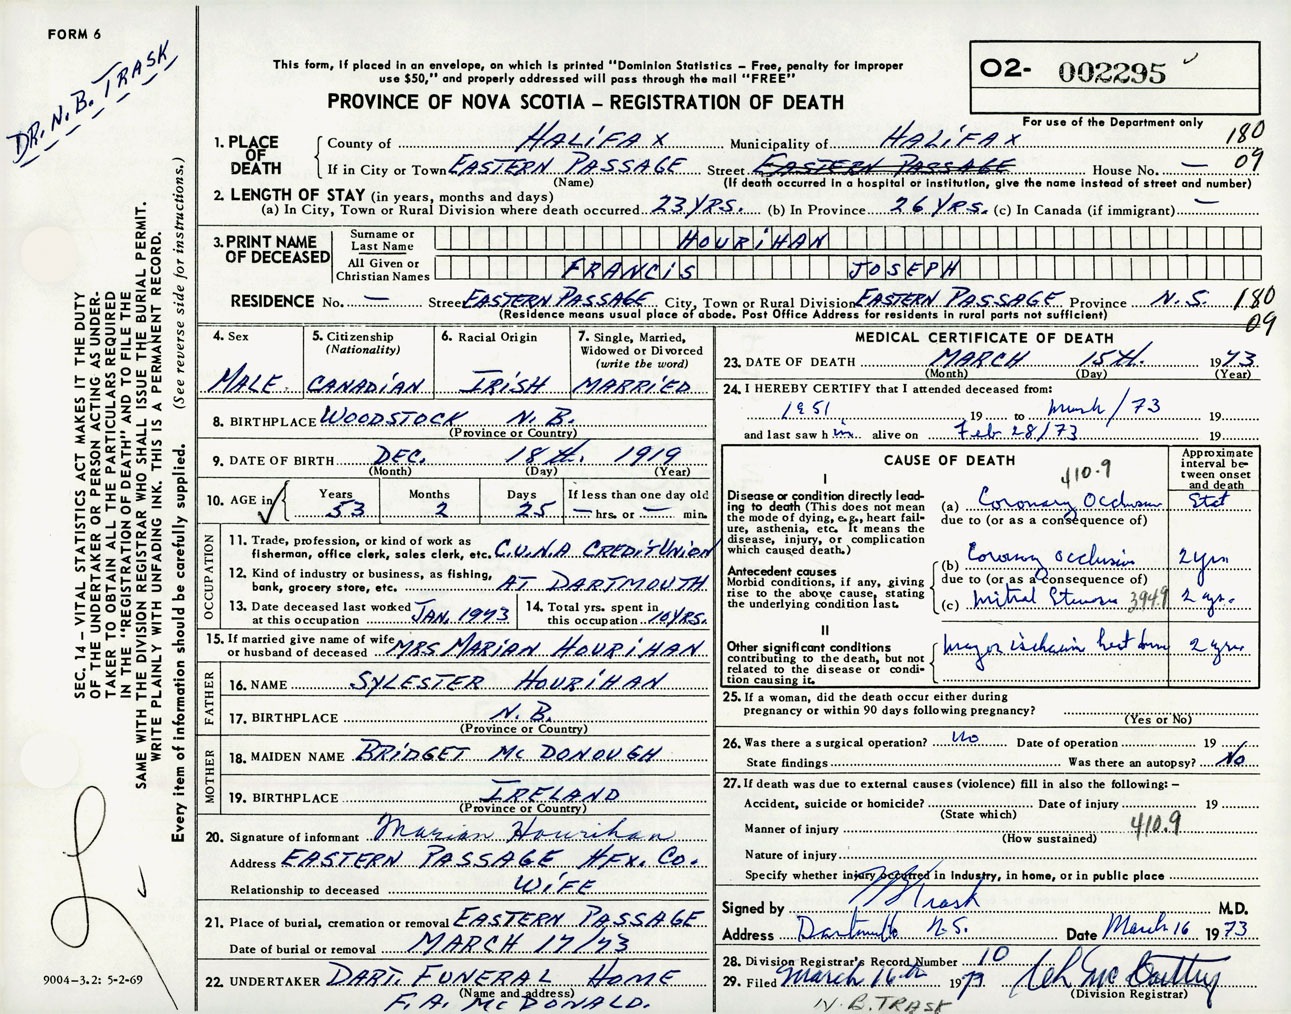 FORM 6
DR. N. B. TRASK
This form, if placed in an envelope, on which is printed "Dominion Statistics – Free, penalty for improper
use $50," and properly addressed will pass through the mail "FREE"
PROVINCE OF NOVA SCOTIA – REGISTRATION OF DEATH
02- 002295
For use of the Department only
1. PLACE OF DEATH
County of HALIFAX Municipality of HALIFAX 180
If in City or Town EASTERN PASSAGE Street EASTERN PASSAGE House No. — 09
(Name) (If death occurred in a hospital or institution, give the name instead of street and number)
2. LENGTH OF STAY (in years, months and days)
(a) In City, Town or Rural Division where death occurred 23 YRS. (b) In Province 26 YRS. (c) In Canada (if immigrant) —
3. PRINT NAME OF DECEASED
Surname or Last Name HOURIHAN
All Given or Christian Names FRANCIS JOSEPH
RESIDENCE No. — Street EASTERN PASSAGE City, Town or Rural Division EASTERN PASSAGE Province N.S. 180
(Residence means usual place of abode. Post Office Address for residents in rural parts not sufficient) 09
4. Sex
MALE
5. Citizenship
(Nationality)
CANADIAN
6. Racial Origin
IRISH
7. Single, Married,
Widowed or Divorced
(write the word)
MARRIED
8. BIRTHPLACE WOODSTOCK N.B.
(Province or Country)
9. DATE OF BIRTH DEC. 18th. 1919
(Month) (Day) (Year)
10. AGE in
Years Months Days If less than one day old
53 2 25 — hrs. or — min.
OCCUPATION
11. Trade, profession, or kind of work as
fisherman, office clerk, sales clerk, etc. C.U.N.A CREDIT UNION
12. Kind of industry or business, as fishing,
bank, grocery store, etc. AT DARTMOUTH
13. Date deceased last worked
at this occupation JAN. 1973
14. Total yrs. spent in
this occupation 10 YRS.
15. If married give name of wife
or husband of deceased MRS MARIAN HOURIHAN
FATHER
16. NAME SYLESTER HOURIHAN
17. BIRTHPLACE N.B.
(Province or Country)
MOTHER
18. MAIDEN NAME BRIDGET MCDONOUGH
19. BIRTHPLACE IRELAND
(Province or Country)
20. Signature of informant Marian Hourihan
Address EASTERN PASSAGE HFX. CO.
Relationship to deceased WIFE
21. Place of burial, cremation or removal EASTERN PASSAGE
Date of burial or removal MARCH 17/73
22. UNDERTAKER DART. FUNERAL HOME
(Name and address)
F.A. MCDONALD.
MEDICAL CERTIFICATE OF DEATH
23. DATE OF DEATH MARCH 15th. 1973
(Month) (Day) (Year)
24. I HEREBY CERTIFY that I attended deceased from:
1951 19 to /73 19
and last saw h im alive on Feb 28/73 19
CAUSE OF DEATH
410.9
Approximate
interval be-
tween onset
and death
I
Disease or condition directly lead-
ing to death (This does not
mean the mode of dying, e.g., heart fail-
ure, asthenia, etc. It means the
disease, injury, or complication
which caused death.)
(a) Coronary Occlusion Stat
due to (or as a consequence of)
Antecedent causes
Morbid conditions, if any, giving
rise to the above cause, stating
the underlying condition last.
(b) Coronary occlusion 2 yrs
due to (or as a consequence of)
(c) Mitral Stenosis 394.9 2 yrs.
II
Other significant conditions
contributing to the death, but not
related to the disease or condi-
tion causing it.
2 yrs
25. If a woman, did the death occur either during
pregnancy or within 90 days following pregnancy?
(Yes or No)
26. Was there a surgical operation? No Date of operation 19
State findings Was there an autopsy? No
27. If death was due to external causes (violence) fill in also the following: –
Accident, suicide or homicide? Date of injury 19
(State which)
Manner of injury 410.9
(How sustained)
Nature of injury
Specify whether injury occurred in Industry, in home, or in public place
Signed by N B Trask M.D.
Address Dartmouth N.S. Date March 16 1973
28. Division Registrar's Record Number 10
29. Filed March 16th 1973
(Division Registrar)
N. B. TRASK
SEC. 14 – VITAL STATISTICS ACT MAKES IT THE DUTY
OF THE UNDERTAKER OR PERSON ACTING AS UNDER-
TAKER TO OBTAIN ALL THE PARTICULARS REQUIRED
IN THE "REGISTRATION OF DEATH" AND TO FILE THE
SAME WITH THE DIVISION REGISTRAR WHO SHALL ISSUE THE BURIAL PERMIT.
WRITE PLAINLY WITH UNFADING INK. THIS IS A PERMANENT RECORD.
Every item of information should be carefully supplied. (See reverse side for instructions.)
9004-3.2: 5-2-69